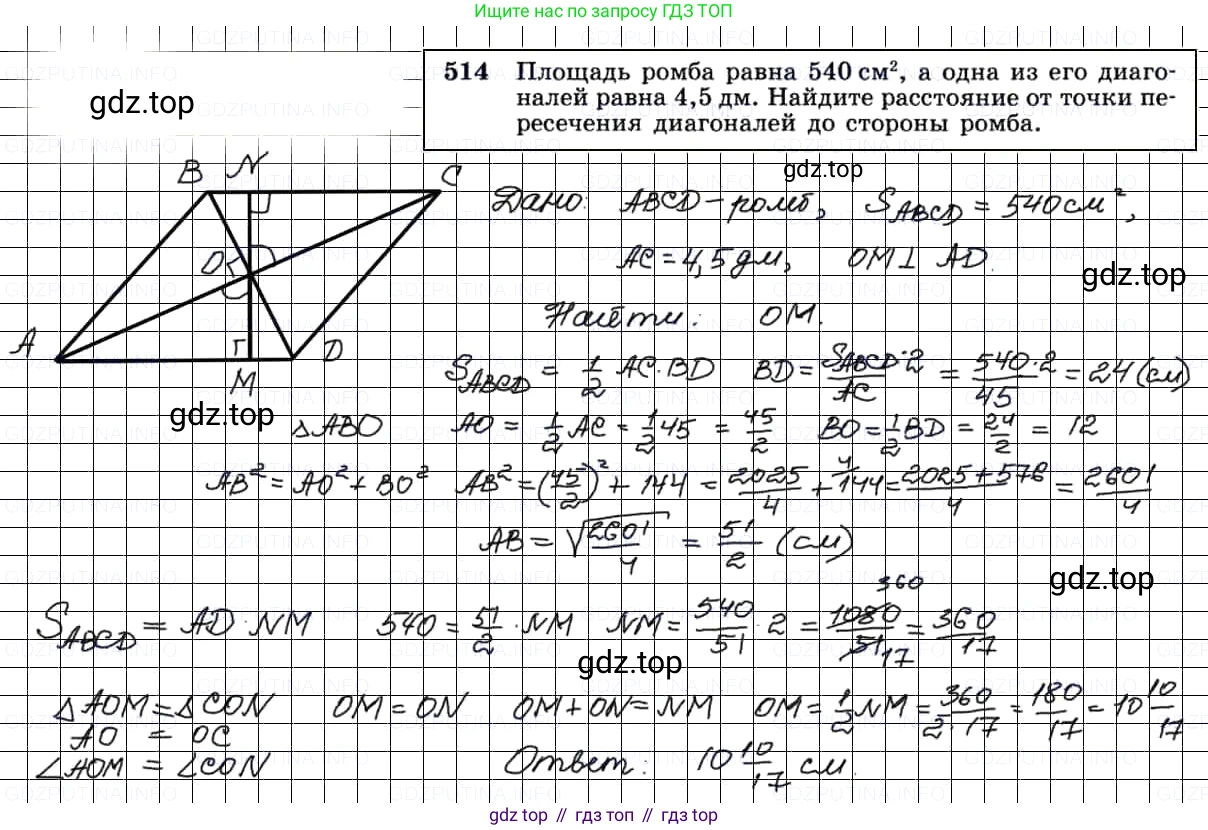 Ищите нас по запросу ГДЗ ТОП
514 Площадь ромба равна 540 см², а одна из его диаго-
налей равна 4,5 дм. Найдите расстояние от точки пе-
ресечения диагоналей до стороны ромба.
gdz.top
gdz.top
B N C
O
A M D
Г
Дано: ABCD – ромб, S_ABCD = 540 см²,
AC = 4,5 дм, OM ⊥ AD.
gdz.top
Найти: OM.
S_ABCD = 1/2 AC·BD BD = S_ABCD·2/AC = 540·2/45 = 24 (см)
gdz.top
△ABO AO = 1/2 AC = 1/2 45 = 45/2 BO = 1/2 BD = 24/2 = 12
AB² = AO² + BO² AB² = (45/2)² + 144 = 2025/4 + 144 4 = 2025+576/4 = 2601/4
AB = √2601/4 = 51/2 (см)
gdz.top
S_ABCD = AD·NM 540 = 51/2 · NM NM = 540/51 · 2 = 1080 360/51 17 = 360/17
gdz.top
△AOM = △CON OM = ON OM + ON = NM OM = 1/2 NM = 360/2·17 = 180/17 = 10 10/17
AO = OC
∠AOM = ∠CON Ответ: 10 10/17 см.
gdz top // гдз топ // gdz.top
GDZPUTINA.INFO